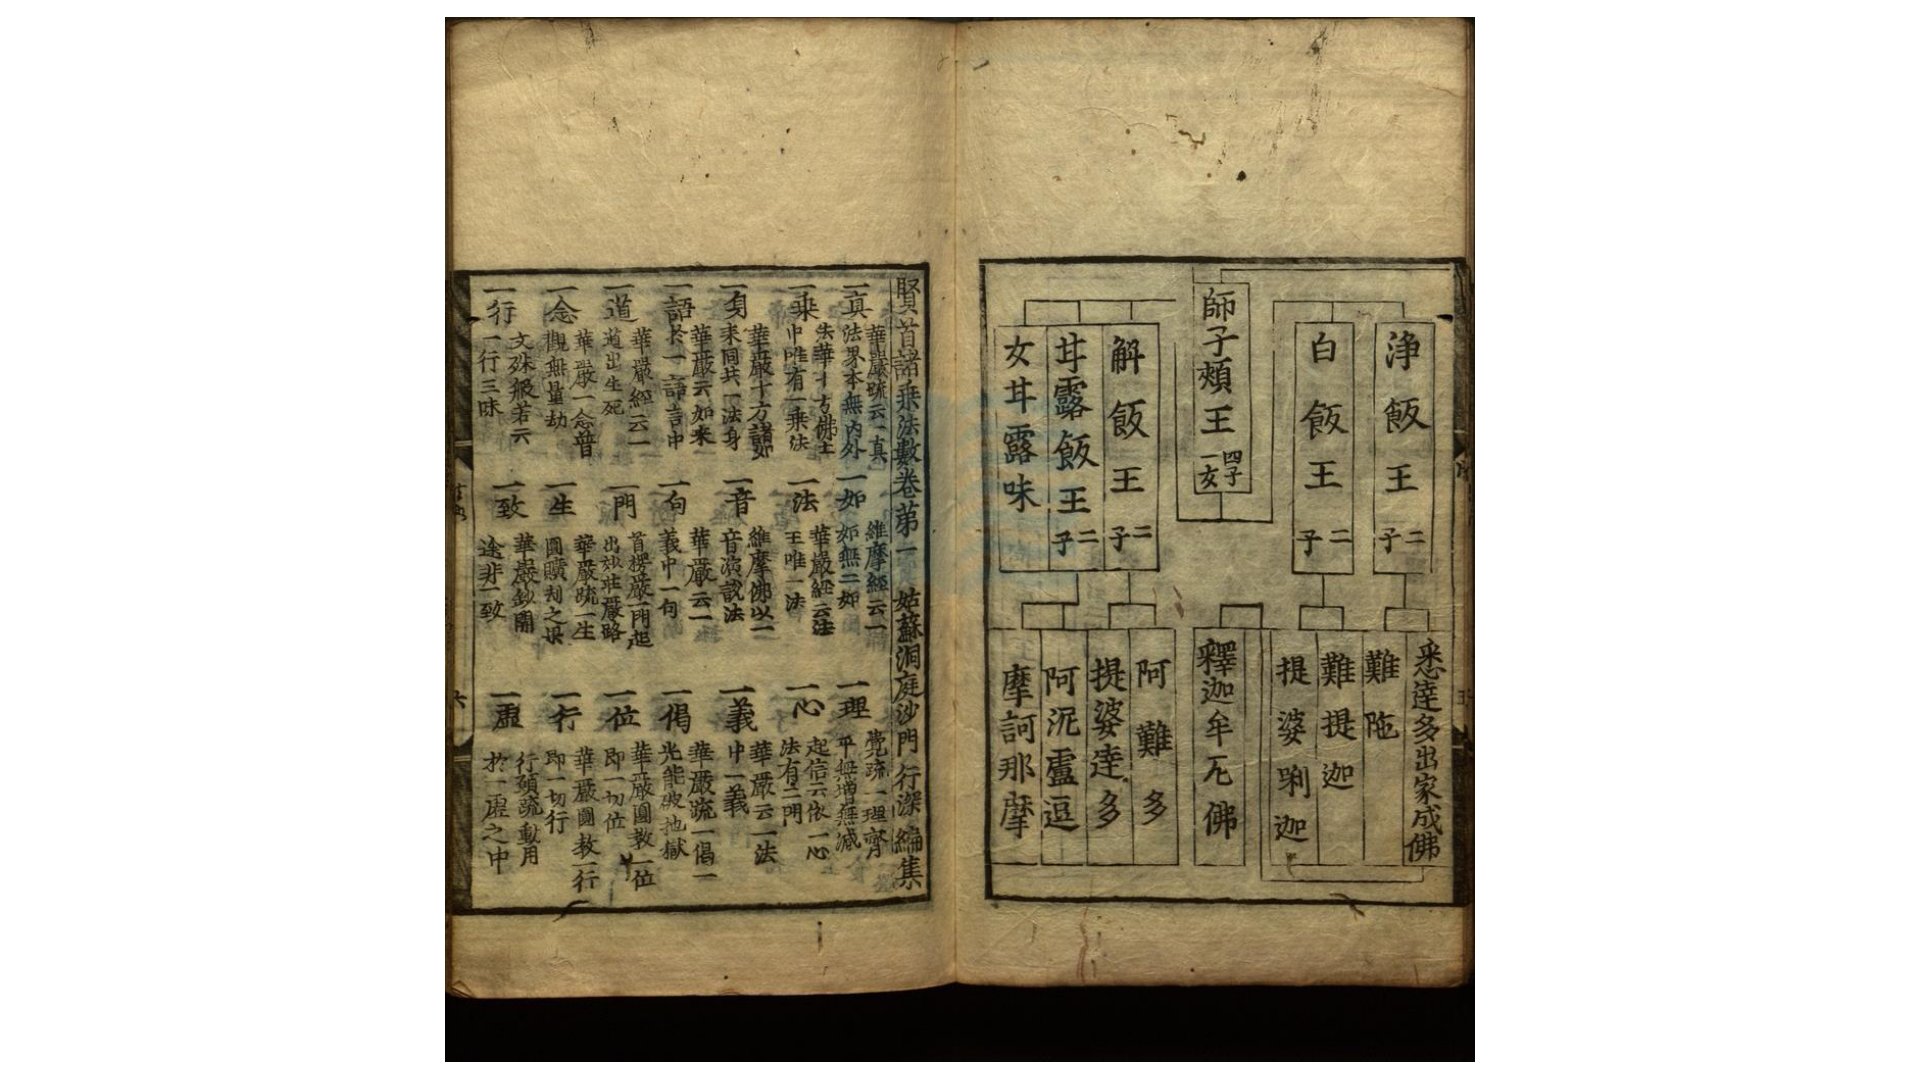 師子頰王 四子一女
淨飯王 二子
白飯王 二子
解飯王 二子
甘露飯王 二子
女甘露味
悉達多出家成佛
難陁
難提迦
提婆唎迦
釋迦牟尼佛
阿難多
提婆達多
阿泥盧逗
摩訶那摩
賢首諸乗法數卷苐一 姑蘇洞庭沙門 行深 編集
一真 華嚴疏云一真法界本無内外
一如 維摩經云一如無二如
一理 覺疏一理齊平無增無減
一乗 法華十方佛土中唯有一乗法
一法 華嚴經云法王唯一法
一心 起信云依一心法有二門
一身 華嚴十方諸如来同共一法身
一音 維摩佛以一音演說法
一義 華嚴云一法中一義
一語 華嚴云如来於一語言中
一句 華嚴云一義中一句
一偈 華嚴疏一偈一光能破地獄
一道 華嚴經云一道出生死
一門 首楞嚴一門超出妙莊嚴路
一位 華嚴圓教一位即一切位
一念 華嚴一念普觀無量劫
一生 華嚴疏一生圓曠刼之果
一行 華嚴圓教一行即一切行
一行 文殊般若云一行三昧
一致 華嚴鈔閞途非一致
一虛 行願疏動用於一虛之中
六